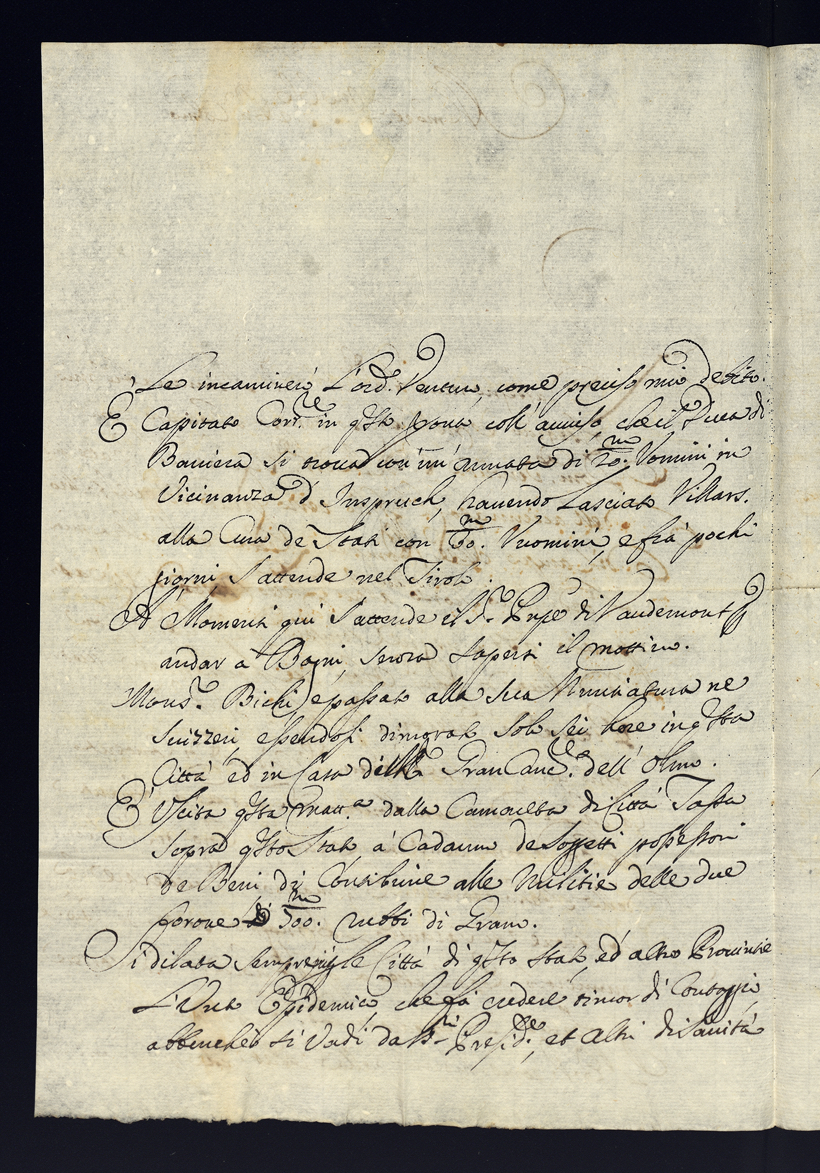 Le incaminerò l'ord. Ventura, come preciso mio debito.
È Capitato Corr.re in qsta hora coll'auuiso, che il Duca di
Bauiera si troua con un'armata di 20.m Uomini in
Vicinanza d'Inspruch, hauendo Lasciato Villars.
alla Cura de Stati con 60.m Vuomini, e frà pochi
giorni s'attende nel Tirolo.
A Momenti qui s'attende il S.r Prnpe di Vaudemont p
andar à Bagni, senza sapersi il mottiuo.
Mons.r Bichi è passato alla sua Nuntiatura ne
Suizzeri, essendosi dimorato solo sei hore in qsta
Città ed in Casa del Gran Canc.re dell'Olmo.
È Vscita qsta matt.a dalla Camoretta di Città Tassa
sopra qsto Stato à Cadaun de Soggetti possessori
de Beni di Contribuire alle Militie delle due
Corone 300.m rubbi di Grano.
Si dilata sempre in qste Città di qsto Stato, ed altre Prouintie
L'Vua Epidemica, che fà credere timor di Contaggio,
abbenche si Vadi da SS.ri Presid.te, et altri di Sanità